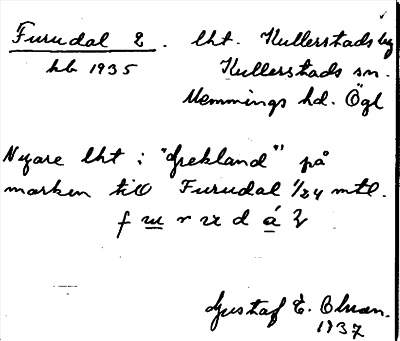 Furudal 2. lht. Kullerstads by
hb 1935 Kullerstads sn.
Memmings hd. Ögl
Nyare lht i "Grekland" på
marken till Furudal 1/24 mtl.
Gustaf E. Ohman.
1937